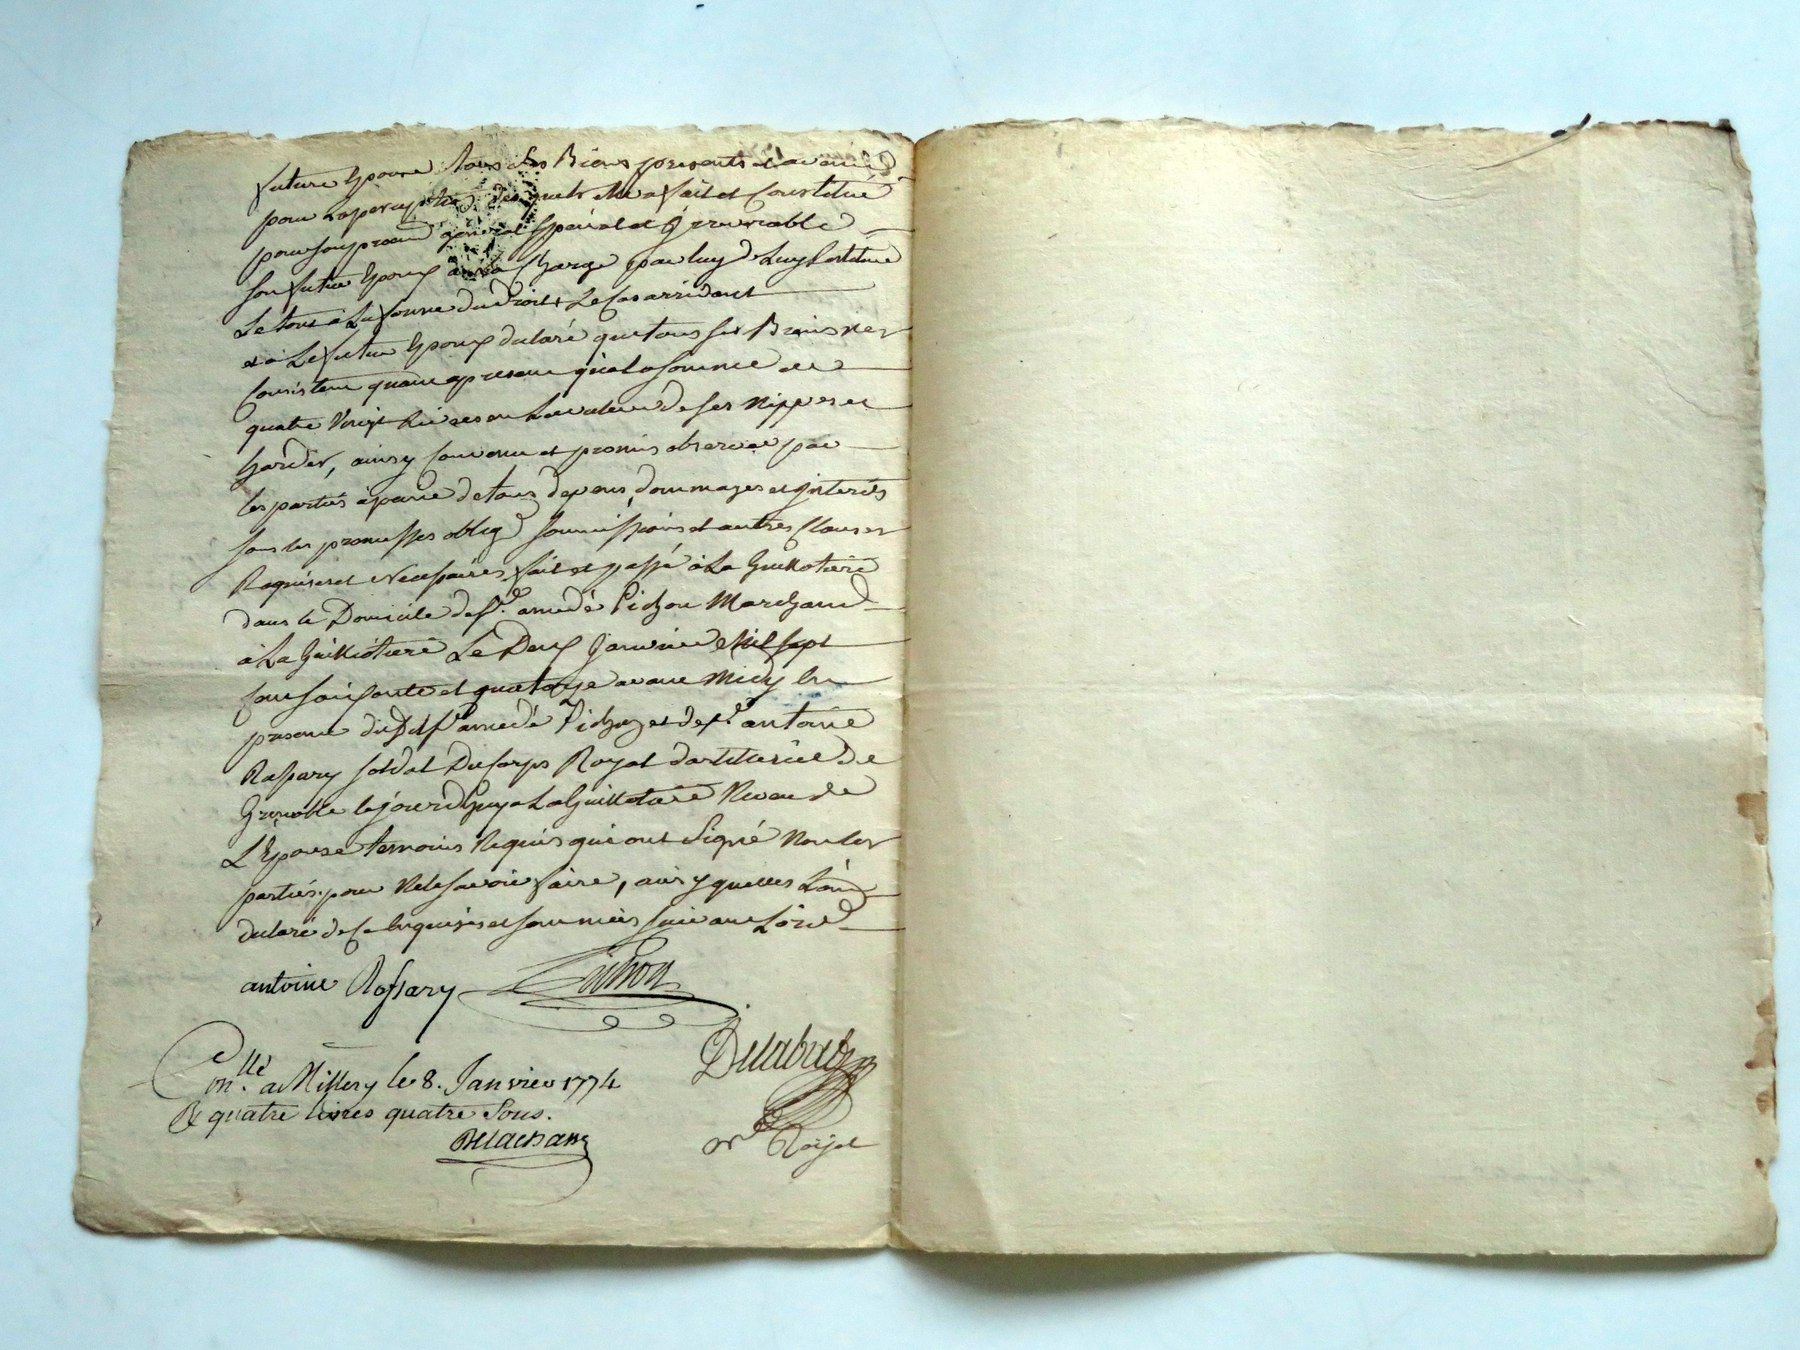 future Epouse tous ses Biens presents et avenir
pour la perception desquels elle a fait et Constitué
pour son procur general special et Irrevocable
son futur Epoux à la Charge par luy d'Luy
Le tout à La forme du Droit, Le Cas arrivant
et a Le futur Epoux declaré que tous ses Biens ne
Consistent quant apresent qu'à la somme de
quatre Vingt Livres en La valeur de ses nippes et
hardes, ainsy Convenu et promis observer par
les partiés apeine de tous depens, dommages et Interets
sous les promesses oblig soumissions et autres Clauses
Requises et Necessaires, fait et passé à La Guillotiere
dans le Domicile de sr. amedé Pichon Marchand
à La Guillotiere Le Deux Janvier Mil sept
cent soixante et quatorze avant Midy En
presence dud. sr. amedé Pichon et de sr. antoine
Rossary soldat Du Corps Royal d'artillerie de
Grenoble le jour d'huy a La Guillotiere Neveu de
L'Epouse temoins Requis qui ont Signé Non les
partiés pour Ne le savoir faire, ainsy quelles L'ont
declaré de ce Enquises et sommeés suivant L'ord
antoine Rossary Pichon
Conllé. a Millery le 8. Janvier 1774
R quatre livres quatre Sous.
Royal